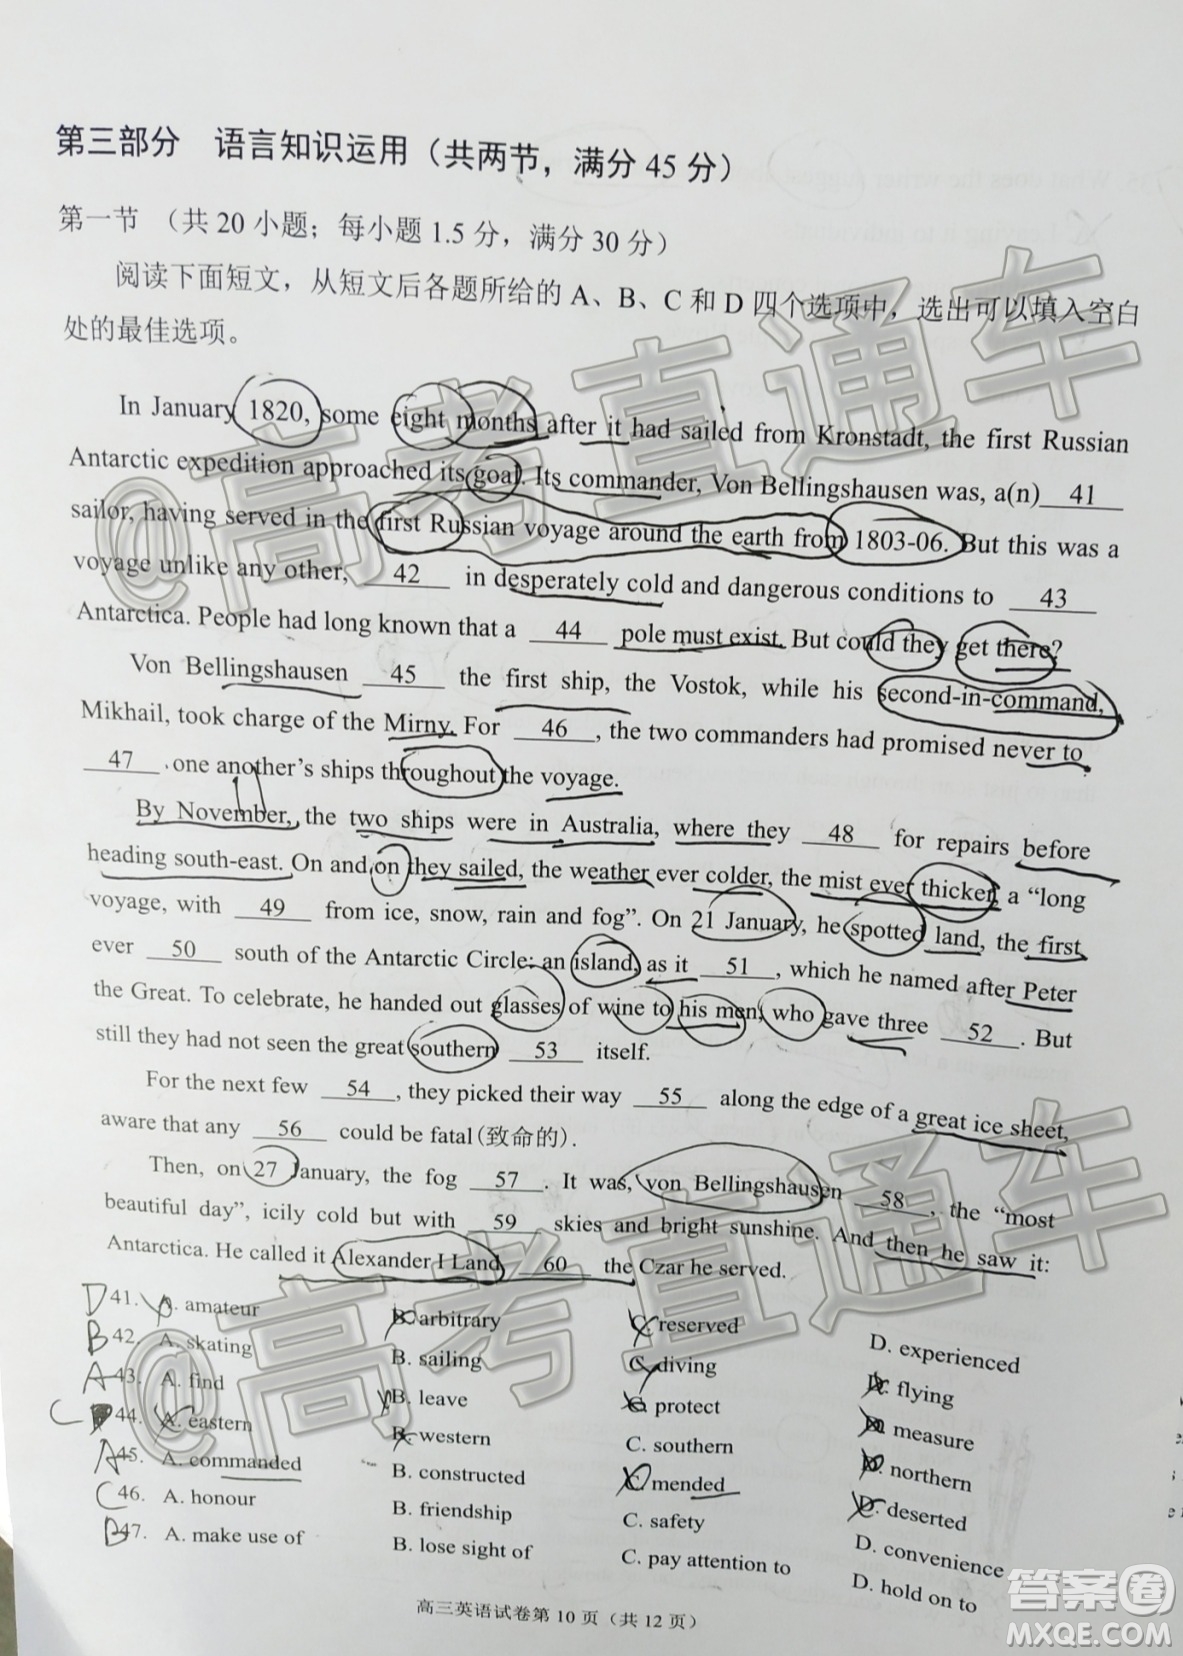 第三部分 语言知识运用（共两节，满分 45 分）
第一节 （共 20 小题；每小题 1.5 分，满分 30 分）
阅读下面短文，从短文后各题所给的 A、B、C 和 D 四个选项中，选出可以填入空白
处的最佳选项。
In January 1820, some eight months after it had sailed from Kronstadt, the first Russian
Antarctic expedition approached its goal. Its commander, Von Bellingshausen was, a(n) 41
sailor, having served in the first Russian voyage around the earth from 1803-06. But this was a
voyage unlike any other, 42 in desperately cold and dangerous conditions to 43
Antarctica. People had long known that a 44 pole must exist. But could they get there?
Von Bellingshausen 45 the first ship, the Vostok, while his second-in-command,
Mikhail, took charge of the Mirny. For 46 , the two commanders had promised never to
47 one another's ships throughout the voyage.
By November, the two ships were in Australia, where they 48 for repairs before
heading south-east. On and on they sailed, the weather ever colder, the mist ever thicker, a “long
voyage, with 49 from ice, snow, rain and fog”. On 21 January, he spotted land, the first
ever 50 south of the Antarctic Circle: an island, as it 51 , which he named after Peter
the Great. To celebrate, he handed out glasses of wine to his men, who gave three 52 . But
still they had not seen the great southern 53 itself.
For the next few 54 , they picked their way 55 along the edge of a great ice sheet,
aware that any 56 could be fatal(致命的).
Then, on 27 January, the fog 57 . It was, von Bellingshausen 58 , the “most
beautiful day”, icily cold but with 59 skies and bright sunshine. And then he saw it:
Antarctica. He called it Alexander I Land, 60 the Czar he served.
D 41. A. amateur B. arbitrary C. reserved D. experienced
B 42. A. skating B. sailing C. diving D. flying
A 43. A. find B. leave C. protect D. measure
C 44. A. eastern B. western C. southern D. northern
A 45. A. commanded B. constructed C. mended D. deserted
C 46. A. honour B. friendship C. safety D. convenience
B 47. A. make use of B. lose sight of C. pay attention to D. hold on to
高三英语试卷第 10 页（共 12 页）
@高考直通车
@高考直通车
答案圈
MXQE.COM